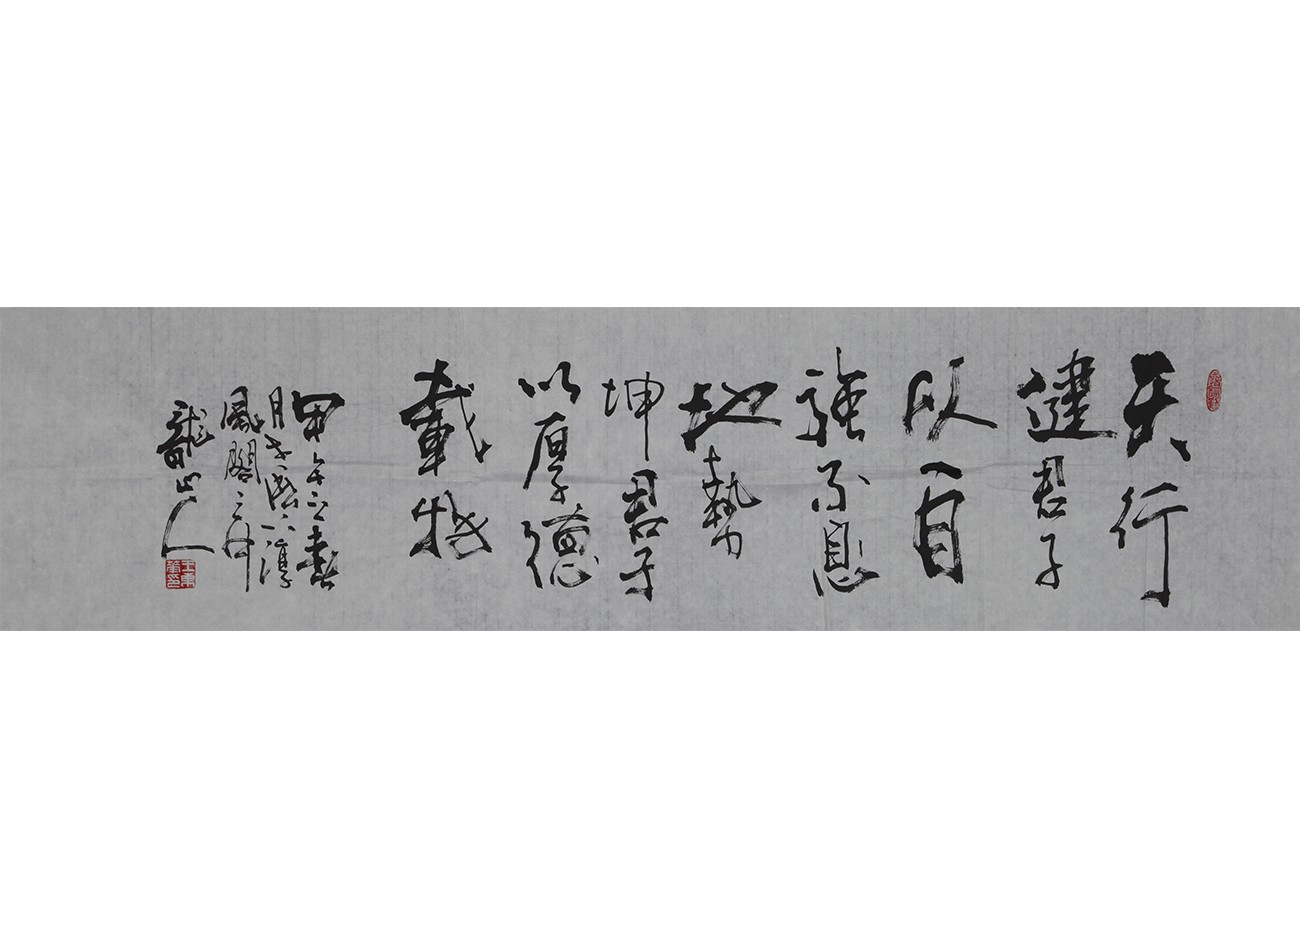 天行
健君子
以自
強不息
地勢
坤君子
以厚德
載物
甲午之春
月於濟六淳
風閣之
龍山人